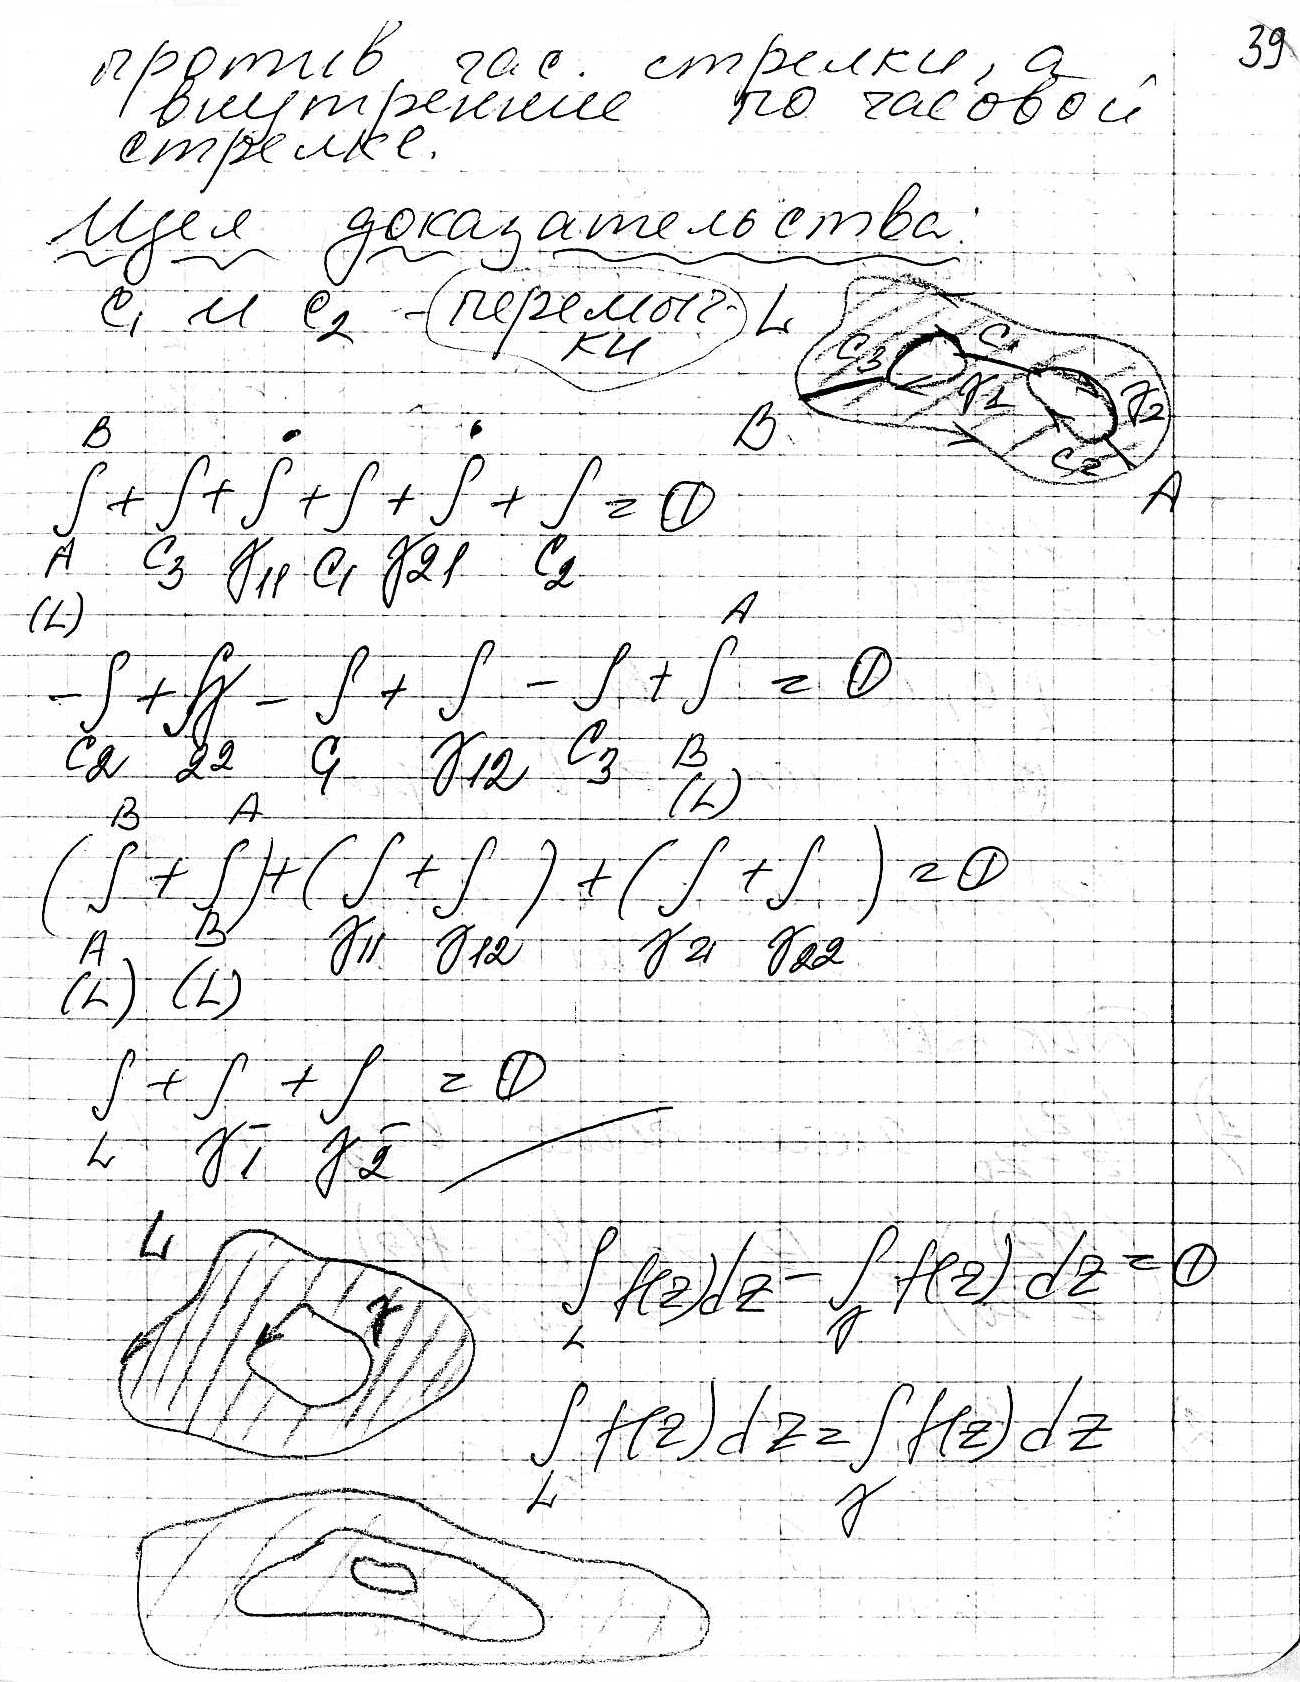 39
против час. стрелки, а
внутренние по часовой
стрелке.
Идея доказательства:
C₁ и C₂ - перемыч-
ки
L C₃ C₁ γ₁ γ₂ C₂ B A
B
∫ + ∫ + ∫ + ∫ + ∫ + ∫ = 0
A C₃ γ₁₁ C₁ γ₂₁ C₂
(L)
A
-∫ + ∫ - ∫ + ∫ - ∫ + ∫ = 0
C₂ γ₂₂ C₁ γ₁₂ C₃ B
(L)
B A
(∫ + ∫) + (∫ + ∫) + (∫ + ∫) = 0
A B γ₁₁ γ₁₂ γ₂₁ γ₂₂
(L) (L)
∫ + ∫ + ∫ = 0
L γ₁⁻ γ₂⁻
L γ
∫ f(z)dz - ∫ f(z)dz = 0
L γ
∫ f(z)dz = ∫ f(z)dz
L γ